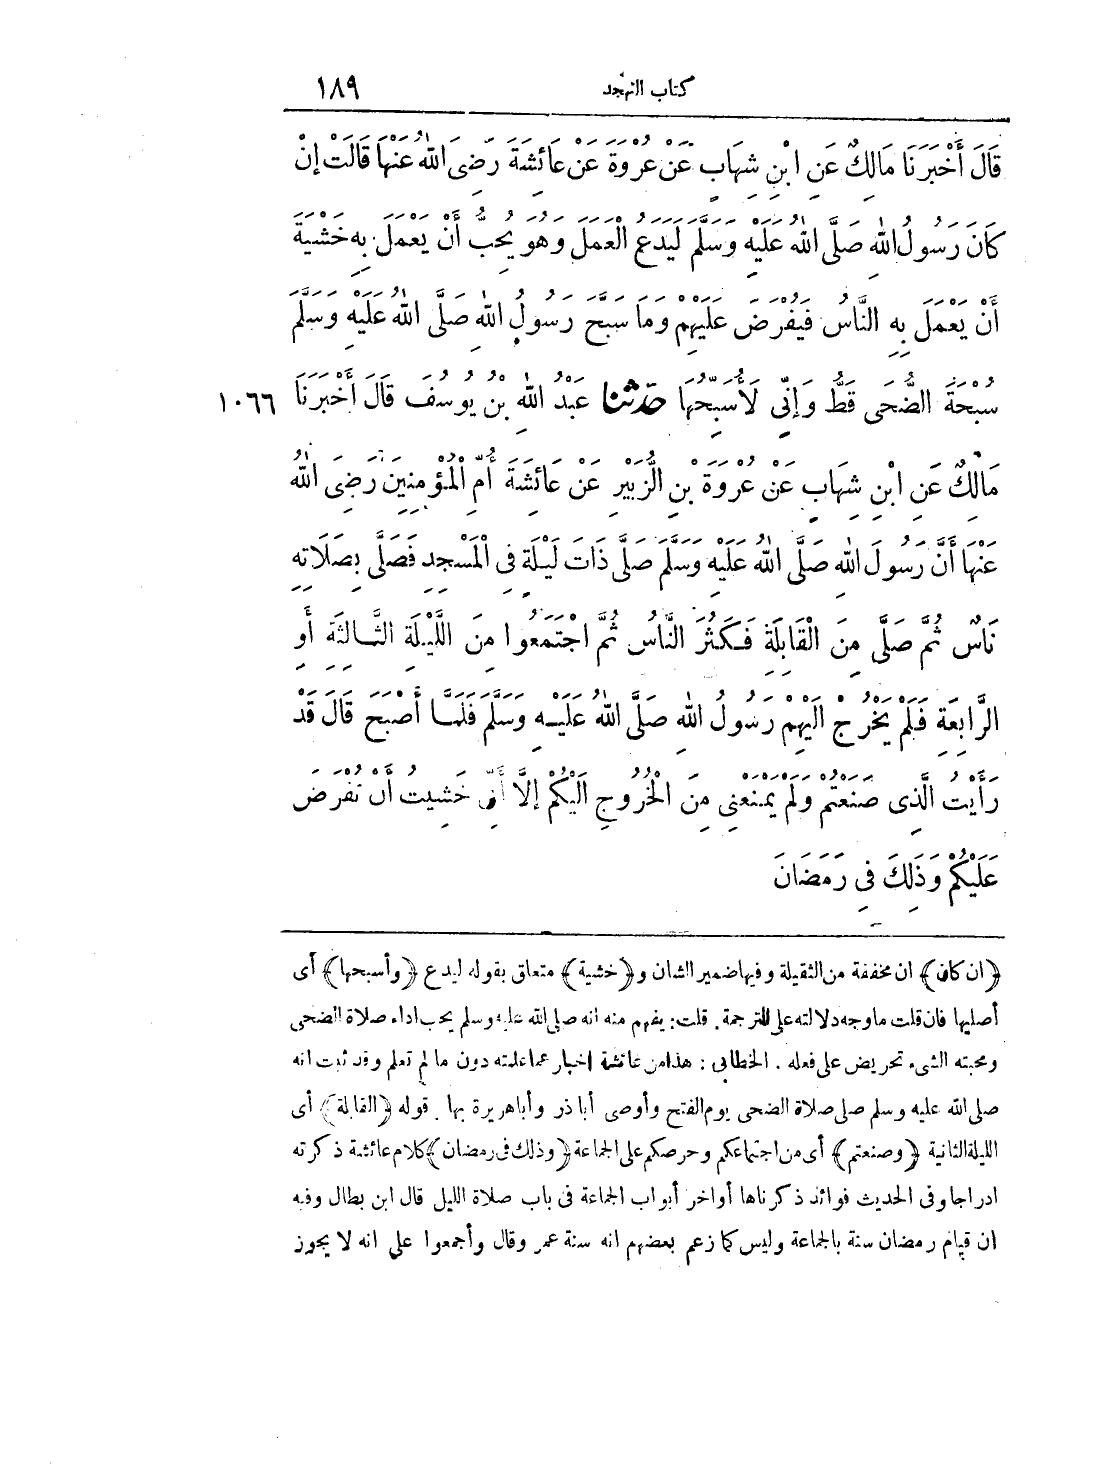 كتاب التهجد ١٨٩
قَالَ أَخْبَرَنَا مَالِكٌ عَنِ ابْنِ شِهَابٍ عَنْ عُرْوَةَ عَنْ عَائِشَةَ رَضِىَ اللهُ عَنْهَا قَالَتْ إِنْ
كَانَ رَسُولُ اللهِ صَلَّى اللهُ عَلَيْهِ وَسَلَّمَ لَيَدَعُ الْعَمَلَ وَهُوَ يُحِبُّ أَنْ يَعْمَلَ بِهِ خَشْيَةَ
أَنْ يَعْمَلَ بِهِ النَّاسُ فَيُفْرَضَ عَلَيْهِمْ وَمَا سَبَّحَ رَسُولُ اللهِ صَلَّى اللهُ عَلَيْهِ وَسَلَّمَ
سُبْحَةَ الضُّحَى قَطُّ وَإِنِّى لَأُسَبِّحُهَا حدثنا عَبْدُ اللهِ بْنُ يُوسُفَ قَالَ أَخْبَرَنَا ١٠٦٦
مَالِكٌ عَنِ ابْنِ شِهَابٍ عَنْ عُرْوَةَ بْنِ الزُّبَيْرِ عَنْ عَائِشَةَ أُمِّ الْمُؤْمِنِينَ رَضِىَ اللهُ
عَنْهَا أَنَّ رَسُولَ اللهِ صَلَّى اللهُ عَلَيْهِ وَسَلَّمَ صَلَّى ذَاتَ لَيْلَةٍ فِى الْمَسْجِدِ فَصَلَّى بِصَلَاتِهِ
نَاسٌ ثُمَّ صَلَّى مِنَ الْقَابِلَةِ فَكَثُرَ النَّاسُ ثُمَّ اجْتَمَعُوا مِنَ اللَّيْلَةِ الثَّالِثَةِ أَوِ
الرَّابِعَةِ فَلَمْ يَخْرُجْ الَيْهِمْ رَسُولُ اللهِ صَلَّى اللهُ عَلَيْهِ وَسَلَّمَ فَلَمَّا أَصْبَحَ قَالَ قَدْ
رَأَيْتُ الَّذِى صَنَعْتُمْ وَلَمْ يَمْنَعْنِى مِنَ الْخُرُوجِ الَيْكُمْ إِلَّا أَنِّى خَشِيتُ أَنْ تُفْرَضَ
عَلَيْكُمْ وَذَلِكَ فِى رَمَضَانَ
﴿ان كان﴾ ان مخففة من الثقيلة وفيها ضمير الشان و﴿خشية﴾ متعلق بقوله ليدع ﴿وأسبحها﴾ أى
أصليها فان قلت ما وجه دلالته على الترجمة. قلت: يفهم منه انه صلى الله عليه وسلم يحب اداء صلاة الضحى
ومحبته الشىء تحريض على فعله. الخطابى: هذا من عائشة اخبار عما علمته دون ما لم تعلم وقد ثبت انه
صلى الله عليه وسلم صلى صلاة الضحى يوم الفتح وأوصى أبا ذر وأبا هريرة بها. قوله ﴿القابلة﴾ أى
الليلة الثانية ﴿وصنعتم﴾ أى من اجتماعكم وحرصكم على الجماعة ﴿وذلك فى رمضان﴾ كلام عائشة ذكرته
ادراجا وفى الحديث فوائد ذكرناها أواخر أبواب الجماعة فى باب صلاة الليل قال ابن بطال وفيه
ان قيام رمضان سنة بالجماعة وليس كما زعم بعضهم انه سنة عمر وقال وأجمعوا على انه لا يجوز